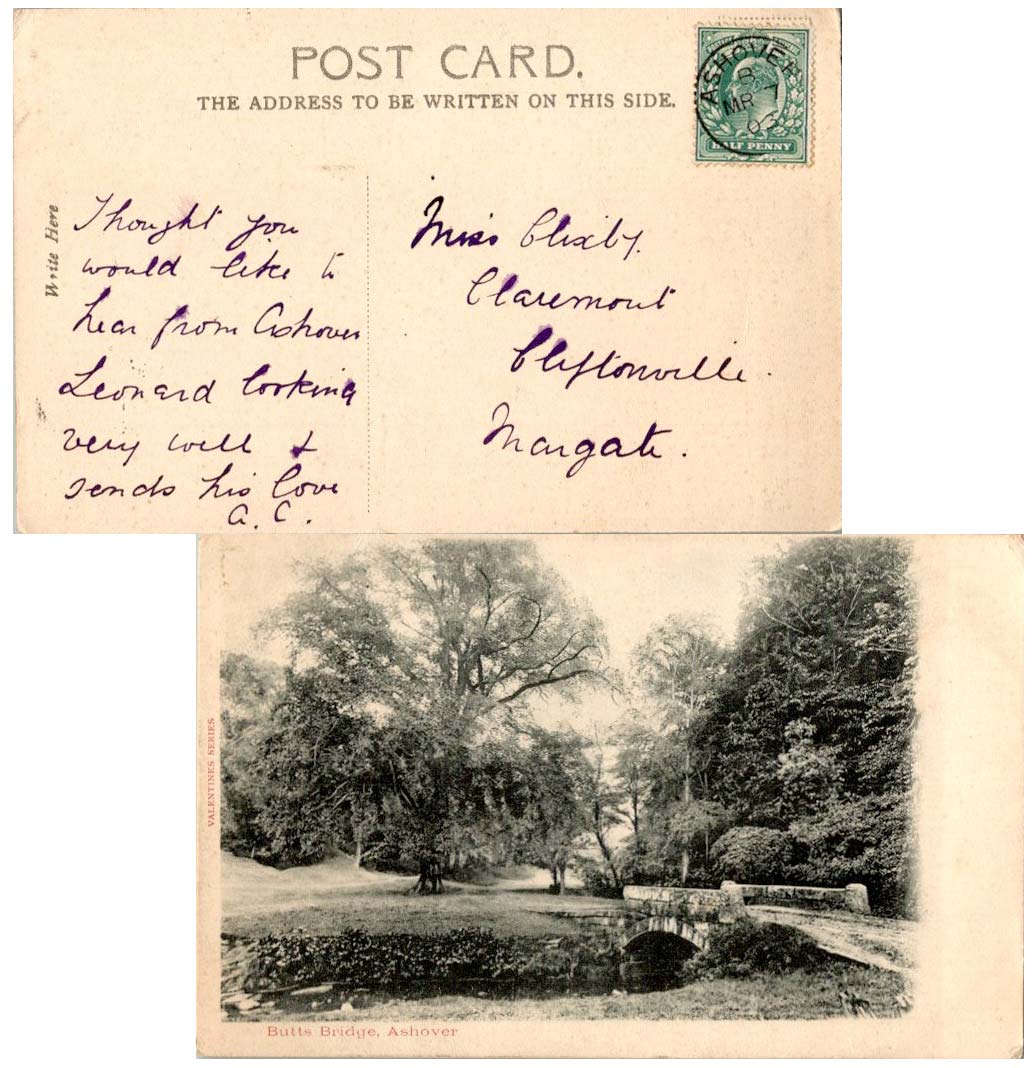 POST CARD.
THE ADDRESS TO BE WRITTEN ON THIS SIDE.
ASHOVER
B
MR 7
03
HALF PENNY
Write Here
Thought you
would like to
hear from Ashover
Leonard looking
very well &
sends his love
A. C.
Miss Clixby.
Claremont
Cliftonville.
Margate.
VALENTINES SERIES
Butts Bridge, Ashover